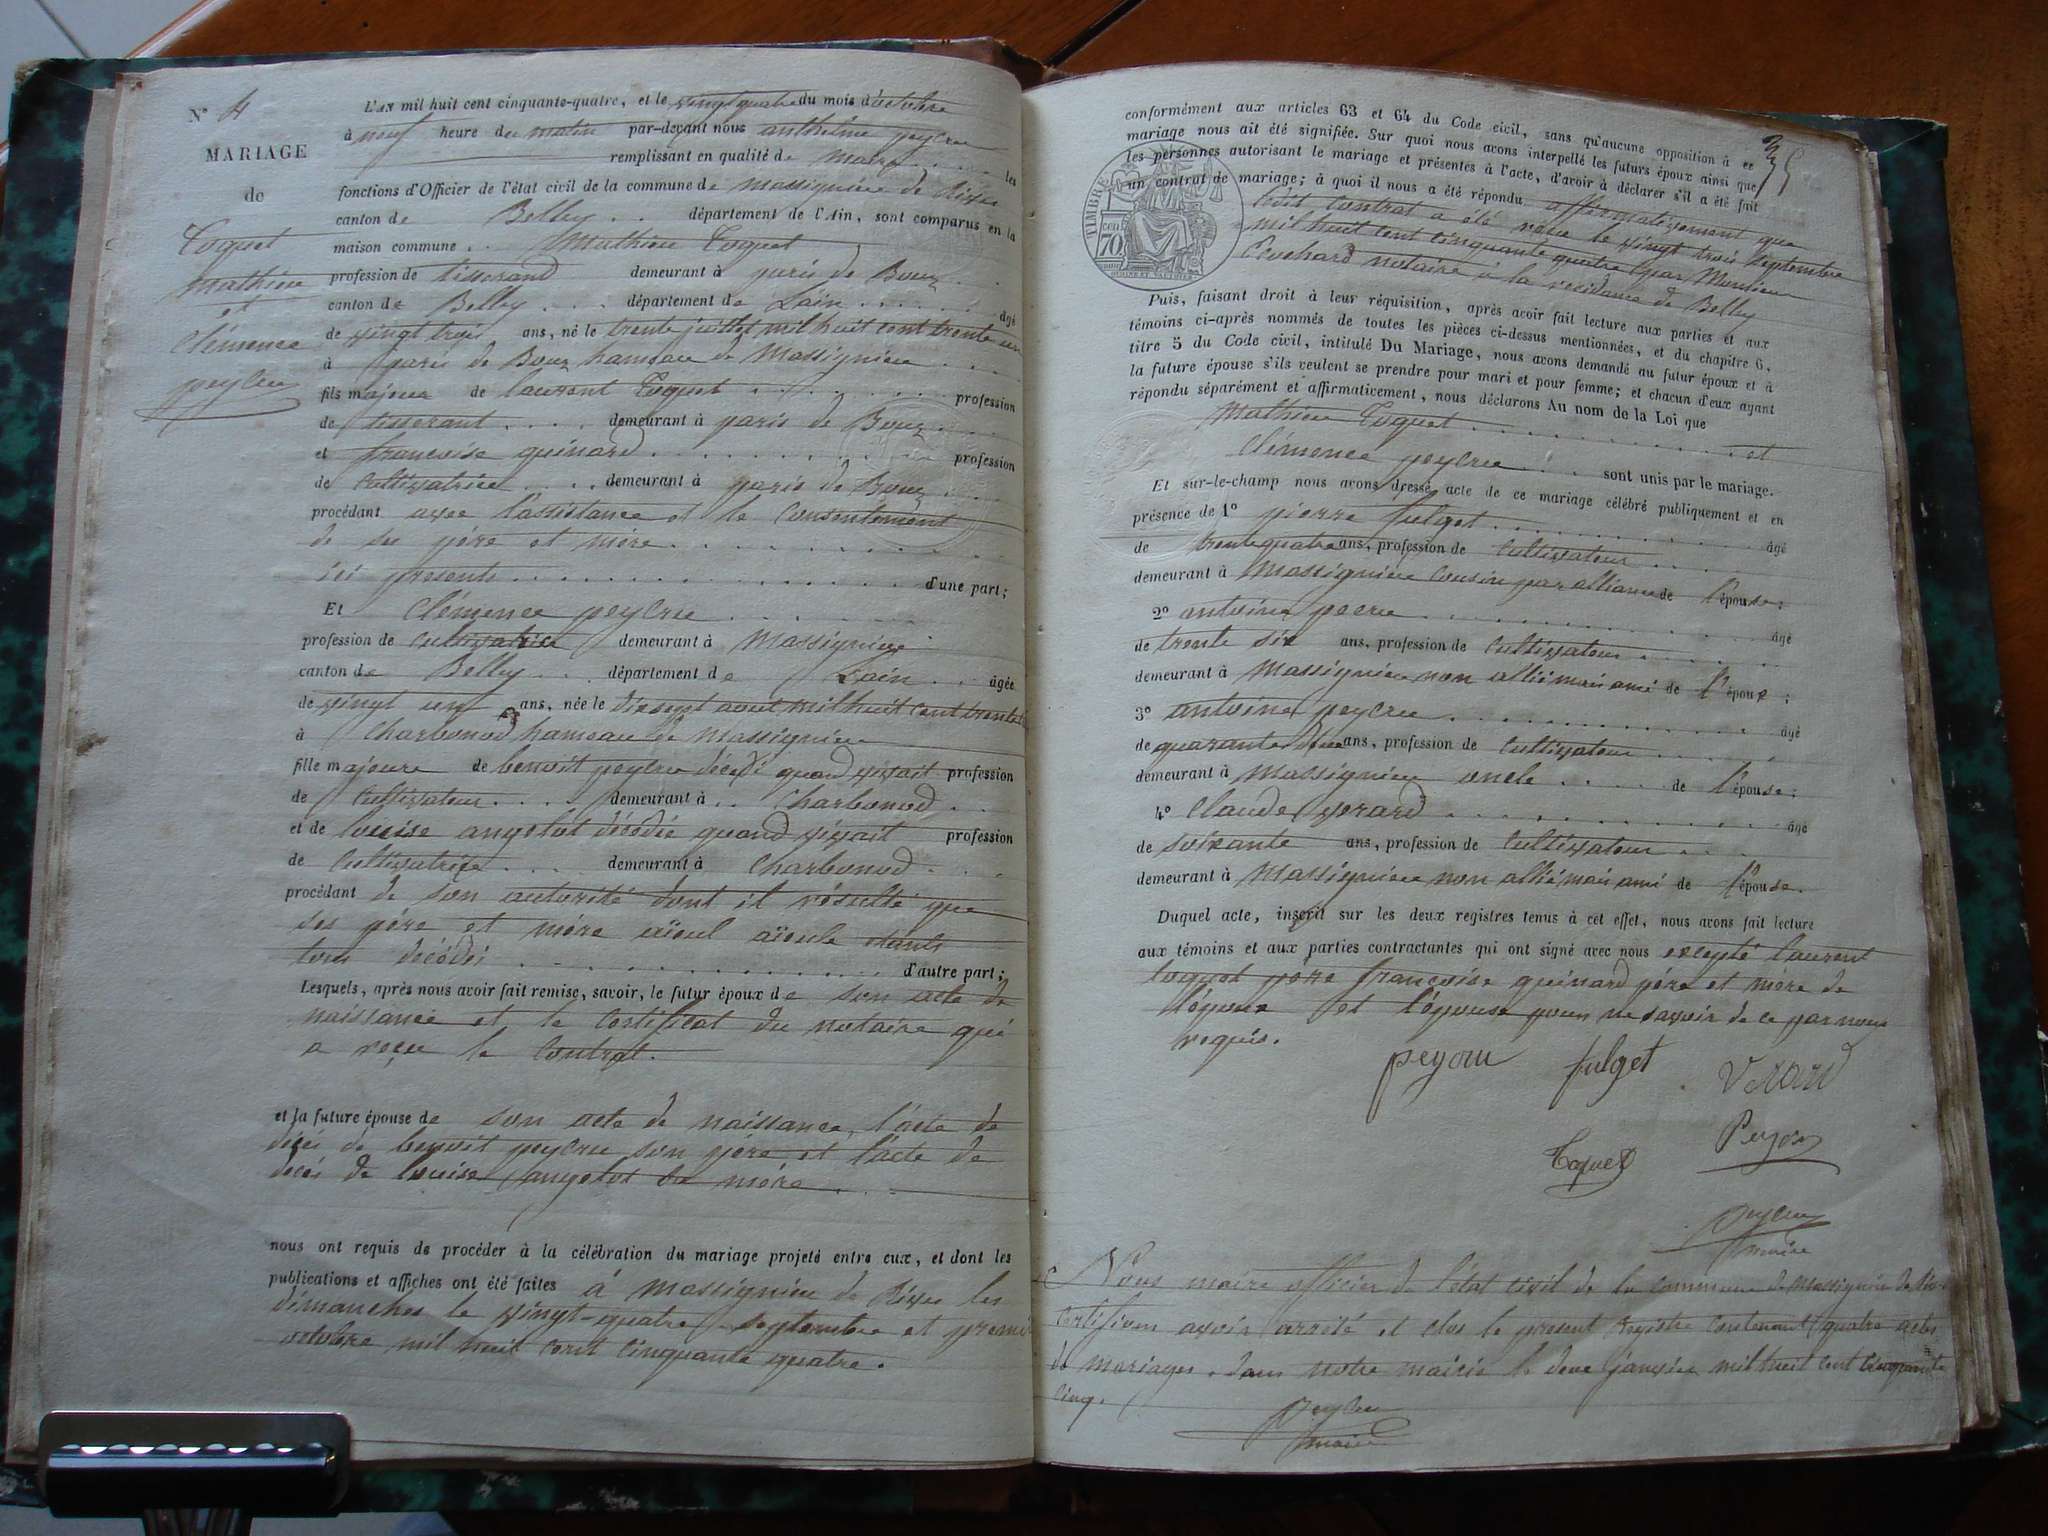 N° 4
MARIAGE
de
Toquet
Mathieu
et
Clémence
peycru
L'AN mil huit cent cinquante-quatre, et le vingt quatre du mois d'octobre
à neuf heure du matin par-devant nous anthelme peycru
remplissant en qualité de maire les
fonctions d'Officier de l'état civil de la commune de Massignieu de Rives
canton de Belley département de l'Ain, sont comparus en la
maison commune Mathieu Toquet
profession de tisserand demeurant à paris de Bouz
canton de Belley département de Lain âgé
de vingt trois ans, né le trente juillet mil huit cent trente un
à paris de Bouz hameau de Massignieu
fils majeur de laurent Toquet profession
de tisserant demeurant à paris de Bouz
et francoise guinard profession
de Cultivatrice demeurant à paris de Bouz
procédant avec l'assistance et le Consentement
de ses père et mère
ici presents d'une part;
Et Clémence peycru
profession de Cultivatrice demeurant à Massignieu
canton de Belley département de Lain âgée
de vingt un ans, née le dixsept aout mil huit cent trente
à Charbonod hameau de Massignieu
fille majeure de benoit peycru décédé quand vivait profession
de Cultivateur demeurant à Charbonod
et de louise angelot décédée quand vivait profession
de Cultivatrice demeurant à Charbonod
procédant de son autorité dont il résulte que
ses père et mère aïeul aïeule étants
tous décédés d'autre part;
Lesquels, après nous avoir fait remise, savoir, le futur époux de son acte de
naissance et le Certificat du notaire qui
a reçu le Contrat.
et la future épouse de son acte de naissance, l'acte de
décès de benoit peycru son père et l'acte de
décès de louise angelot sa mère
nous ont requis de procéder à la célébration du mariage projeté entre eux, et dont les
publications et affiches ont été faites à Massignieu de Rives les
dimanches le vingt-quatre septembre et premier
octobre mil huit cent cinquante quatre.
35
conformément aux articles 63 et 64 du Code civil, sans qu'aucune opposition à ce
mariage nous ait été signifiée. Sur quoi nous avons interpellé les futurs époux ainsi que
les personnes autorisant le mariage et présentes à l'acte, d'avoir à déclarer s'il a été fait
un contrat de mariage; à quoi il nous a été répondu affirmativement que
ledit Contrat a été reçu le vingt trois septembre
mil huit cent cinquante quatre par Monsieur
notaire à la résidance de Belley
TIMBRE
70
Puis, faisant droit à leur réquisition, après avoir fait lecture aux parties et aux
témoins ci-après nommés de toutes les pièces ci-dessus mentionnées, et du chapitre 6,
titre 5 du Code civil, intitulé Du Mariage, nous avons demandé au futur époux et à
la future épouse s'ils veulent se prendre pour mari et pour femme; et chacun d'eux ayant
répondu séparément et affirmativement, nous déclarons Au nom de la Loi que
Mathieu Toquet et
Clémence peycru sont unis par le mariage.
Et sur-le-champ nous avons dressé acte de ce mariage célébré publiquement et en
présence de 1° pierre fulget âgé
de trente quatre ans, profession de Cultivateur
demeurant à Massignieu Cousin par alliance de l'épouse;
2° antoine peycru âgé
de trente six ans, profession de Cultivateur
demeurant à Massignieu non allié mais ami de l'époux;
3° antoine peycru âgé
de quarante deux ans, profession de Cultivateur
demeurant à Massignieu oncle de l'épouse;
4° Claude verard âgé
de soixante ans, profession de Cultivateur
demeurant à Massignieu non allié mais ami de l'épouse.
Duquel acte, inscrit sur les deux registres tenus à cet effet, nous avons fait lecture
aux témoins et aux parties contractantes qui ont signé avec nous excepté laurent
toquet père francoise guinard père et mère de
l'époux et l'épouse pour ne savoir de ce par nous
requis.
fulget Verard
Toquet
Peycru
maire
Nous maire officier de l'état civil de la Commune de Massignieu de Rives
Certifions avoir arrêté et clos le présent Registre Contenant quatre actes
de mariages dans notre mairie le deux janvier mil huit cent Cinquante
Cinq.
Peycru
maire